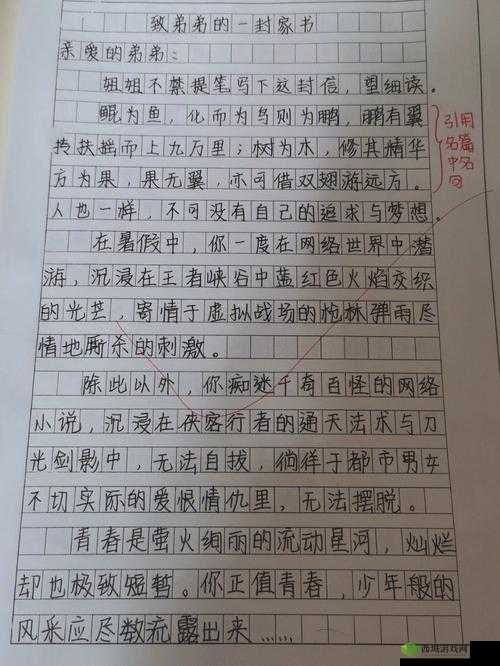 致弟弟的一封家书
亲爱的弟弟：
姐姐不禁提笔写下这封信，望细读。
鲲为鱼，化而为鸟则为鹏，鹏有翼
抟扶摇而上九万里；树为木，修其精华
方为果，果无翼，亦可借双翅游远方。
人也一样，不可没有自己的追求与梦想。
引用
名篇
中名
句
在暑假中，你一度在网络世界中潜
游，沉浸在王者峡谷中蓝红色火焰交织
的光芒，寄情于虚拟战场的枪林弹雨尽
情地厮杀的刺激。
除此以外，你痴迷千奇百怪的网络
小说，沉浸在侠客行者的通天法术与刀
光剑影中，无法自拔，徜徉于都市男女
不切实际的爱恨情仇里，无法摆脱。
青春是萤火绚丽的流动星河，灿烂
却也极致短暂。你正值青春，少年般的
风采应尽数流露出来……
西城游戏网